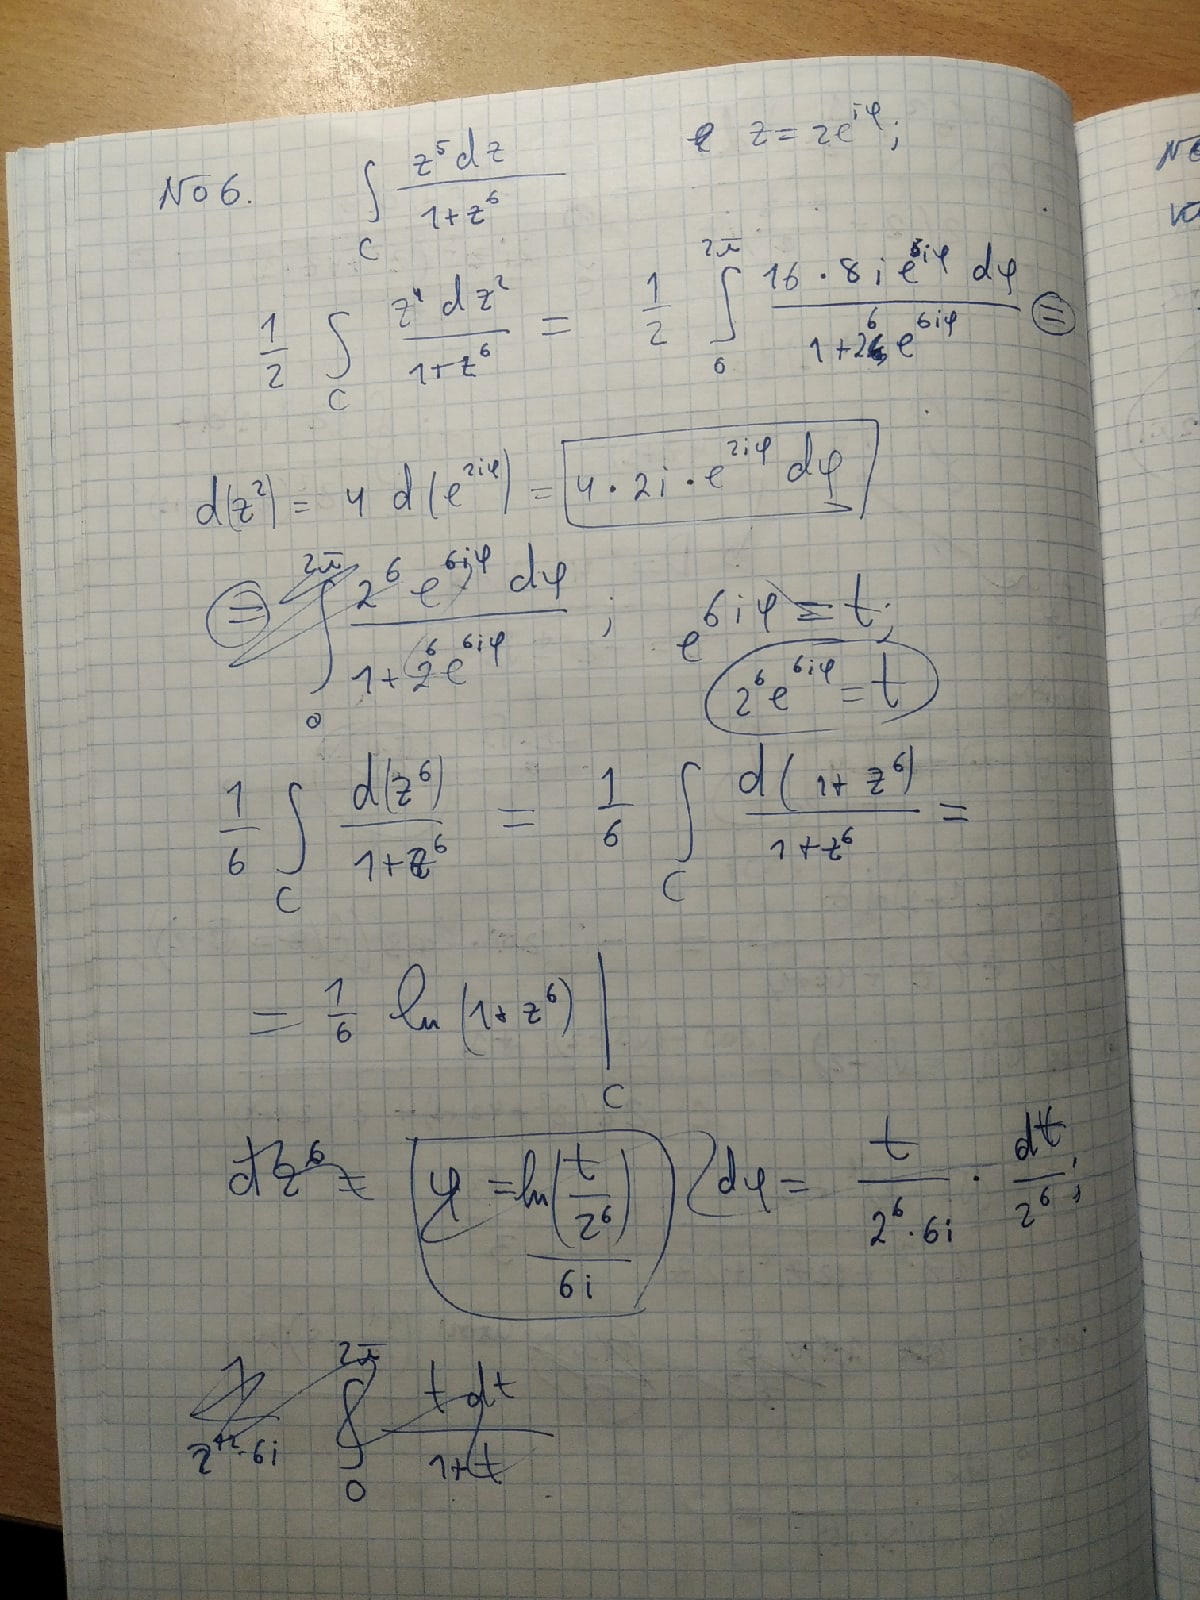 №6. ∫_C z⁵dz / (1+z⁶)   z = 2e^{iφ};
1/2 ∫_C z⁴ dz² / (1+z⁶) = 1/2 ∫_0^{2π} 16·8i e^{6iφ} dφ / (1+2⁶e^{6iφ}) ⊜
d(z²) = 4 d(e^{2iφ}) = 4·2i·e^{2iφ} dφ
⊜ ∫_0^{2π} 2⁶ e^{6iφ} dφ / (1+2⁶e^{6iφ}) ; e^{6iφ} = t;
2⁶e^{6iφ} = t
1/6 ∫_C d(z⁶) / (1+z⁶) = 1/6 ∫_C d(1+z⁶) / (1+z⁶) =
= 1/6 ln(1+z⁶) |_C
dz⁶ = φ = ln(t/2⁶) / 6i dφ = t / (2⁶·6i) · dt / 2⁶;
1 / (2¹²·6i) ∫_0^{2π} t dt / (1+t)